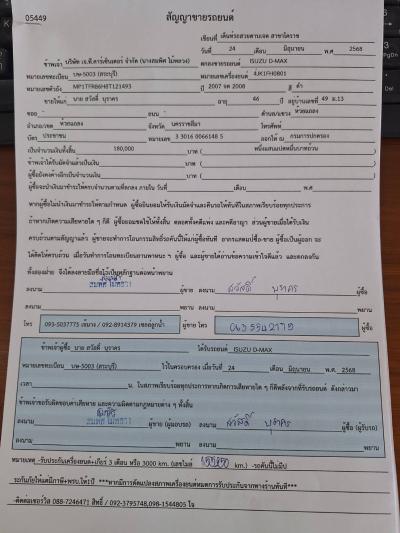 05449
สัญญาขายรถยนต์
เขียนที่ เต็นท์รถสวยตามเจต สาขาโคราช
วันที่ 24 เดือน มิถุนายน พ.ศ. 2568
ข้าพเจ้า บริษัท เจ.ที.คาร์เซ็นเตอร์ จำกัด ตกลงขายรถยนต์ ISUZU D-MAX
หมายเลขทะเบียน บษ-5003 (สระบุรี) หมายเลขเครื่องยนต์ 4JK1FH0801
หมายเลขตัวถัง MP1TFR86H8T121493 ปี 2007 จด 2008 สี ดำ
ขายให้แก่ นาย สวัสดิ์ บุราคร อายุ 46 ปี อยู่บ้านเลขที่ 49 ม.13
ซอย - ถนน - ตำบล/แขวง ห้วยแถลง
อำเภอ/เขต ห้วยแถลง จังหวัด นครราชสีมา โทรศัพท์
บัตร ประชาชน หมายเลข 3 3016 0066148 5 ออกให้ ณ กรมการปกครอง
เป็นจำนวนเงินทั้งสิ้น 180,000 บาท ( หนึ่งแสนแปดหมื่นบาทถ้วน )
ข้าพเจ้าได้รับมัดจำแล้วเป็นเงิน บาท ( )
ผู้ซื้อยังคงค้างอีกเป็นจำนวนเงิน บาท ( )
ผู้ซื้อจะนำเงินมาชำระให้ครบจำนวนตามที่ตกลง ภายใน วันที่ เดือน พ.ศ.
หากผู้ซื้อไม่นำเงินมาชำระให้ตามกำหนด ผู้ซื้อยินยอมให้ริบเงินมัดจำและคืนรถให้ทันทีในสภาพเรียบร้อยทุกประการ
ถ้าหากเกิดความเสียหายใด ๆ ก็ดี ผู้ซื้อยอมชดใช้ให้ทั้งสิ้น ตลอดทั้งคดีแพ่ง และคดีอาญา ส่วนผู้ขายเมื่อได้รับเงิน
ครบถ้วนตามสัญญาแล้ว ผู้ขายจะทำการโอนกรรมสิทธิ์รถคันนี้ให้แก่ผู้ซื้อทันที
ทั้งสองฝ่าย จึงได้ลงลายมือชื่อไว้เป็นหลักฐานต่อหน้าพยาน
ลงนาม ผู้ขาย ลงนาม สวัสดิ์ บุราคร ผู้ซื้อ
ลงนาม พยาน ลงนาม พยาน
โทร 093-5037775 เสี่ยบาง / 092-8914379 เชลล์ลูกน้ำ ผู้ขาย โทร ผู้ซื้อ
ข้าพเจ้าผู้ซื้อ นาย สวัสดิ์ บุราคร ได้รับรถยนต์ ISUZU D-MAX
หมายเลขทะเบียน บษ-5003 (สระบุรี) ไว้ในครอบครอง เมื่อวันที่ 24 เดือน มิถุนายน พ.ศ. 2568
เวลา น. ในสภาพเรียบร้อยทุกประการหากเกิดการเสียหายใด ๆ ก็ดีหลังจากที่รับรถยนต์ ดังกล่าวมา
ข้าพเจ้าขอรับผิดชอบค่าเสียหาย และความผิดตามกฎหมายต่าง ๆ ทั้งสิ้น
ลงนาม ผู้ขาย (ผู้มอบรถ) ลงนาม สวัสดิ์ บุราคร ผู้ซื้อ (ผู้รับรถ)
ลงนาม พยาน ลงนาม พยาน
หมายเหตุ -รับประกันเครื่องยนต์+เกียร์ 3 เดือน หรือ 3000 km. (เลขไมล์ km.) -รถคันนี้ไม่มีป
ระกันภัยให้แต่มีภาษี+พรบ.ให้1ปี ***หากมีการดัดแปลงสภาพเครื่องยนต์หมดการรับประกันจากทางร้านทันที***
-ติดต่อเซอร์วิส 088-7246471 สิทธิ์ / 092-3795748,098-1544805 ใจ